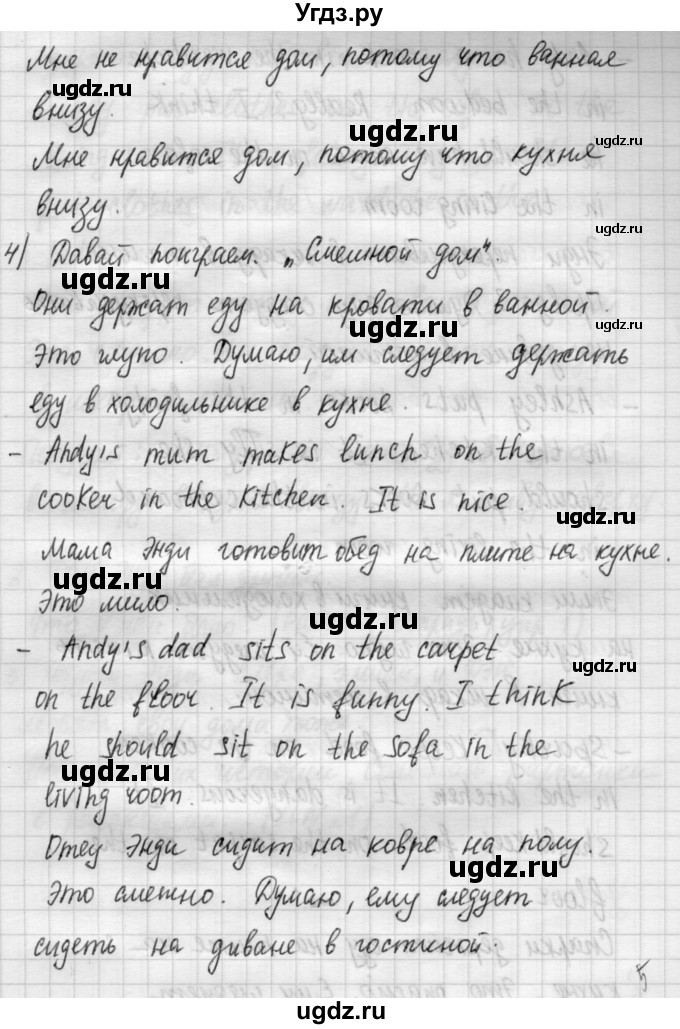 Угдз.ру
Мне не нравится дом, потому что ванная
внизу.
Мне нравится дом, потому что кухня
внизу.
4) Давай поиграем. „Смешной дом".
Они держат еду на кровати в ванной.
Это глупо. Думаю, им следует держать
еду в холодильнике в кухне.
- Andy's mum makes lunch on the
cooker in the kitchen. It is nice.
Мама Энди готовит обед на плите на кухне.
Это мило.
- Andy's dad sits on the carpet
on the floor. It is funny. I think
he should sit on the sofa in the
living room.
Отец Энди сидит на ковре на полу.
Это смешно. Думаю, ему следует
сидеть на диване в гостиной.
5
ugdz.ru
ugdz.ru
ugdz.ru
ugdz.ru
ugdz.ru
ugdz.ru
ugdz.ru
ugdz.ru
ugdz.ru
ugdz.ru
ugdz.ru
ugdz.ru
ugdz.ru